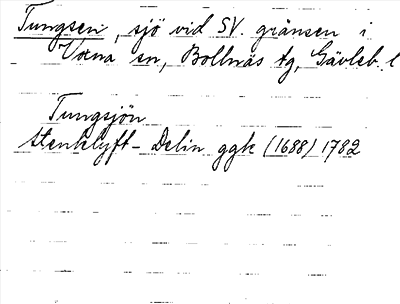 Tungsen, sjö vid SV. gränsen i
Voxna sn, Bollnäs tg, Gävleb. l
Tungsjön
Stenklyft - Delin ggk (1688) 1782